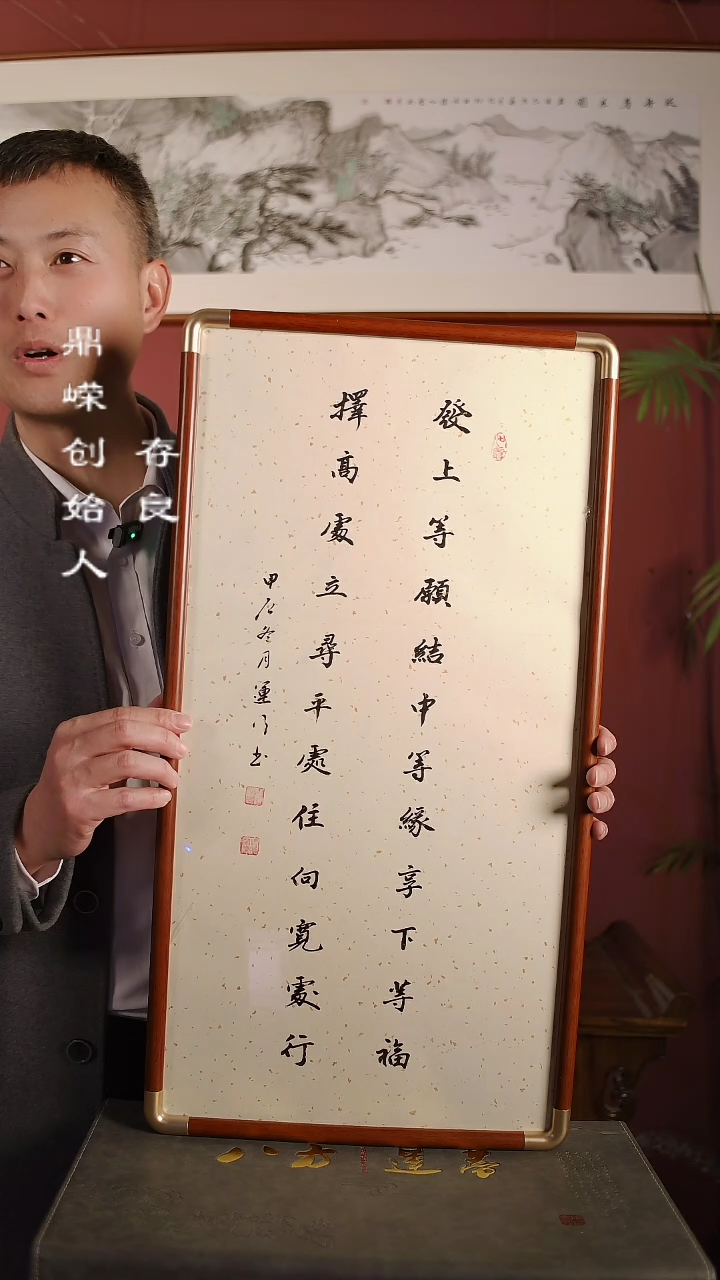 發上等願結中等緣享下等福
擇高處立尋平處住向寬處行
甲辰冬月運
存良
鼎嵘创始人